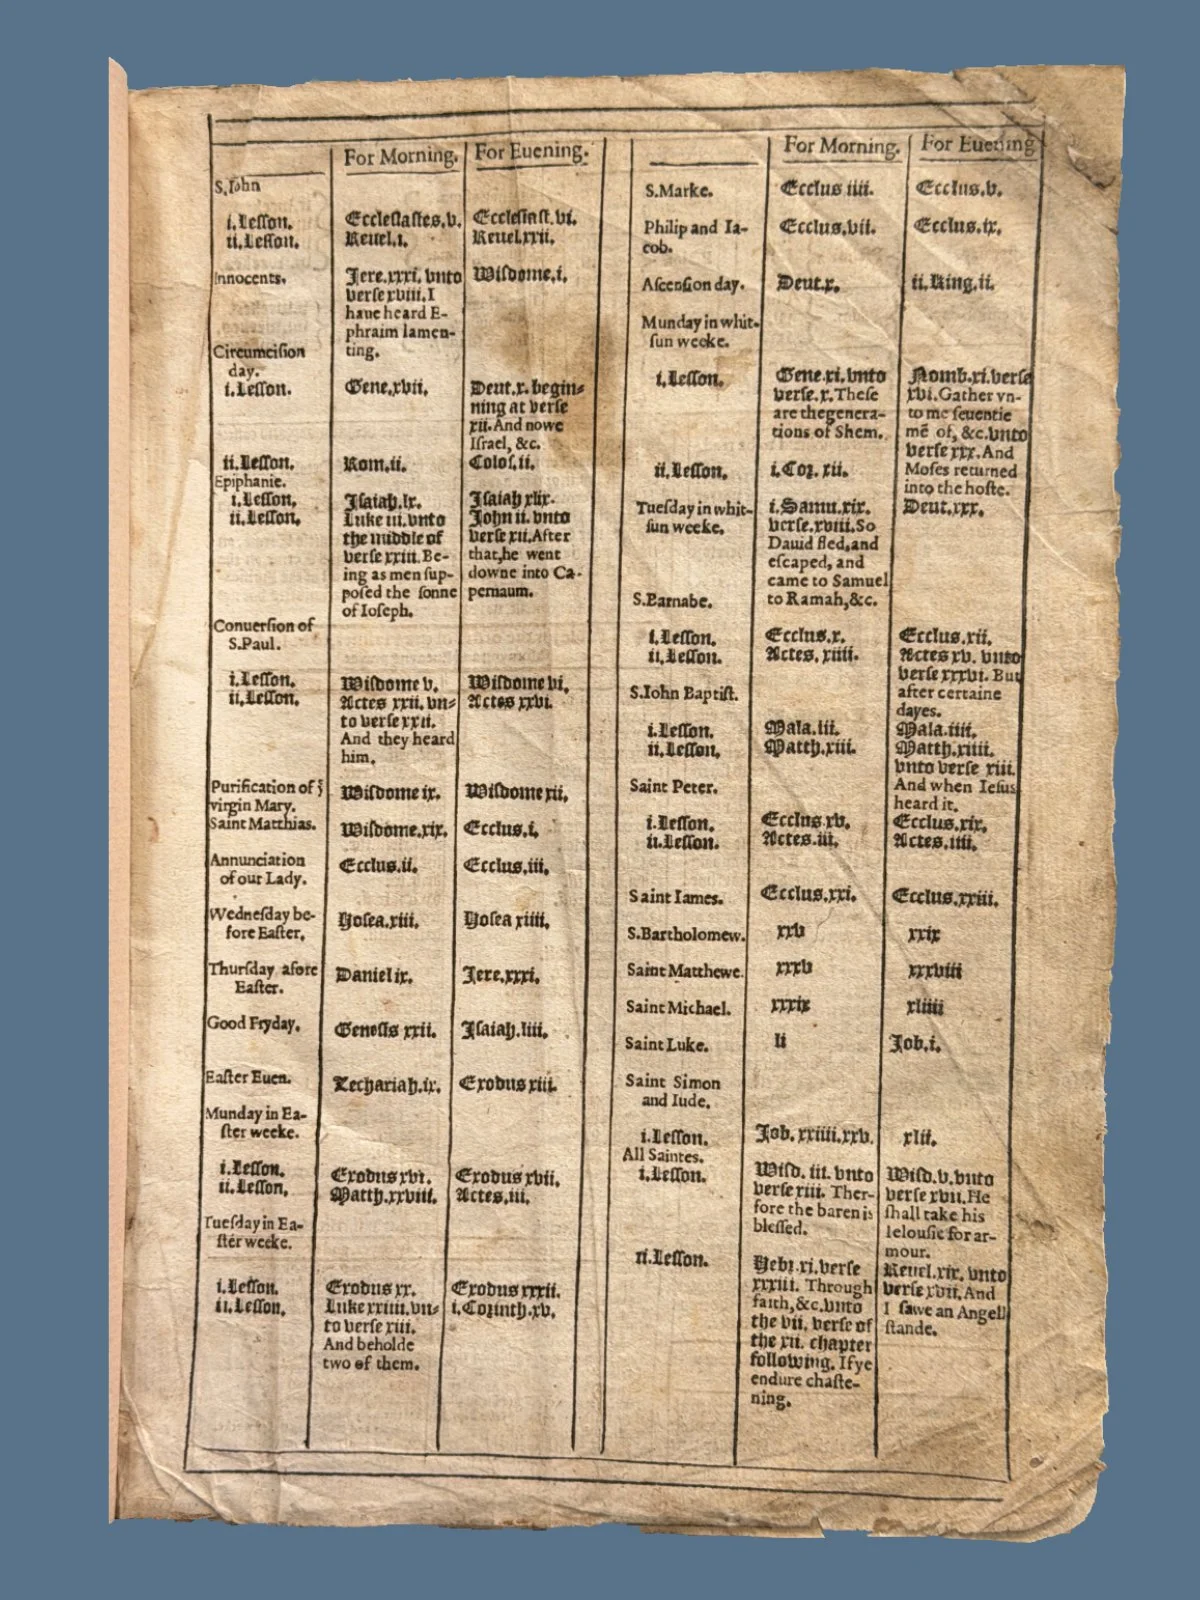 For Morning. For Euening.
S. Iohn
i. Lesson. Ecclesiastes. v. Ecclesiast. vi.
ii. Lesson. Reuel. i. Reuel. xxii.
Innocents. Jere. xxxi. vnto Wisdome. i.
verse xviii. I
haue heard E-
phraim lamen-
ting.
Circumcision
day.
i. Lesson. Gene. xvii. Deut. x. begin-
ning at verse
xii. And nowe
Israel, &c.
ii. Lesson. Rom. ii. Colos. ii.
Epiphanie.
i. Lesson. Isaiah. lx. Isaiah xlix.
ii. Lesson. Luke iii. vnto John ii. vnto
the middle of verse xii. After
verse xxiii. Be- that, he went
ing as men sup- downe into Ca-
posed the sonne pernaum.
of Ioseph.
Conuersion of
S. Paul.
i. Lesson. Wisdome v. Wisdome vi.
ii. Lesson. Actes xxii. vn- Actes xxvi.
to verse xxii.
And they heard
him.
Purification of ẙ Wisdome ix. Wisdome xii.
virgin Mary.
Saint Matthias. Wisdome. xix. Ecclus. i.
Annunciation Ecclus. ii. Ecclus. iii.
of our Lady.
Wednesday be- Hosea. xiii. Hosea xiiii.
fore Easter.
Thursday afore Daniel ix. Jere. xxxi.
Easter.
Good Fryday. Genesis xxii. Isaiah. liii.
Easter Euen. Zechariah. ix. Exodus xiii.
Munday in Ea-
ster weeke.
i. Lesson. Exodus xvi. Exodus xvii.
ii. Lesson. Matth. xxviii. Actes. iii.
Tuesday in Ea-
ster weeke.
i. Lesson. Exodus xx. Exodus xxxii.
ii. Lesson. Luke xxiiii. vn- i. Corinth. xv.
to verse xiii.
And beholde
two of them.
For Morning. For Euening
S. Marke. Ecclus iiii. Ecclus. v.
Philip and Ia- Ecclus. vii. Ecclus. ix.
cob.
Ascension day. Deut. x. ii. King. ii.
Munday in whit-
sun weeke.
i. Lesson. Gene. xi. vnto Nomb. xi. verse
verse. x. These xvi. Gather vn-
are the genera- to me seuentie
tions of Shem. mē of, &c. vnto
verse xxx. And
ii. Lesson. i. Cor. xii. Moses returned
into the hoste.
Tuesday in whit- i. Samu. xix. Deut. xxx.
sun weeke. verse. xviii. So
Dauid fled, and
escaped, and
came to Samuel
S. Barnabe. to Ramah, &c.
i. Lesson. Ecclus. x. Ecclus. xii.
ii. Lesson. Actes. xiiii. Actes xv. vnto
verse xxxvi. But
S. Iohn Baptist. after certaine
dayes.
i. Lesson. Mala. iii. Mala. iiii.
ii. Lesson. Matth. xiii. Matth. xiiii
vnto verse xiii.
Saint Peter. And when Iesus
heard it.
i. Lesson. Ecclus. xv. Ecclus. xix.
ii. Lesson. Actes. iii. Actes. iiii.
Saint Iames. Ecclus. xxi. Ecclus. xxiii.
S. Bartholomew. xxv xxix
Saint Matthewe. xxxv xxxviii
Saint Michael. xxxix xliiii
Saint Luke. li Job. i.
Saint Simon
and Iude.
i. Lesson. Job. xxiiii. xxv. xlii.
All Saintes.
i. Lesson. Wisd. iii. vnto Wisd. v. vnto
verse xiii. Ther- verse xvii. He
fore the baren is shall take his
blessed. Ielousie for ar-
mour.
ii. Lesson. Hebr. xi. verse Reuel. xix. vnto
xxxiii. Through verse xvii. And
faith, &c. vnto I sawe an Angell
the vii. verse of stande.
the xii. chapter
following. If ye
endure chaste-
ning.